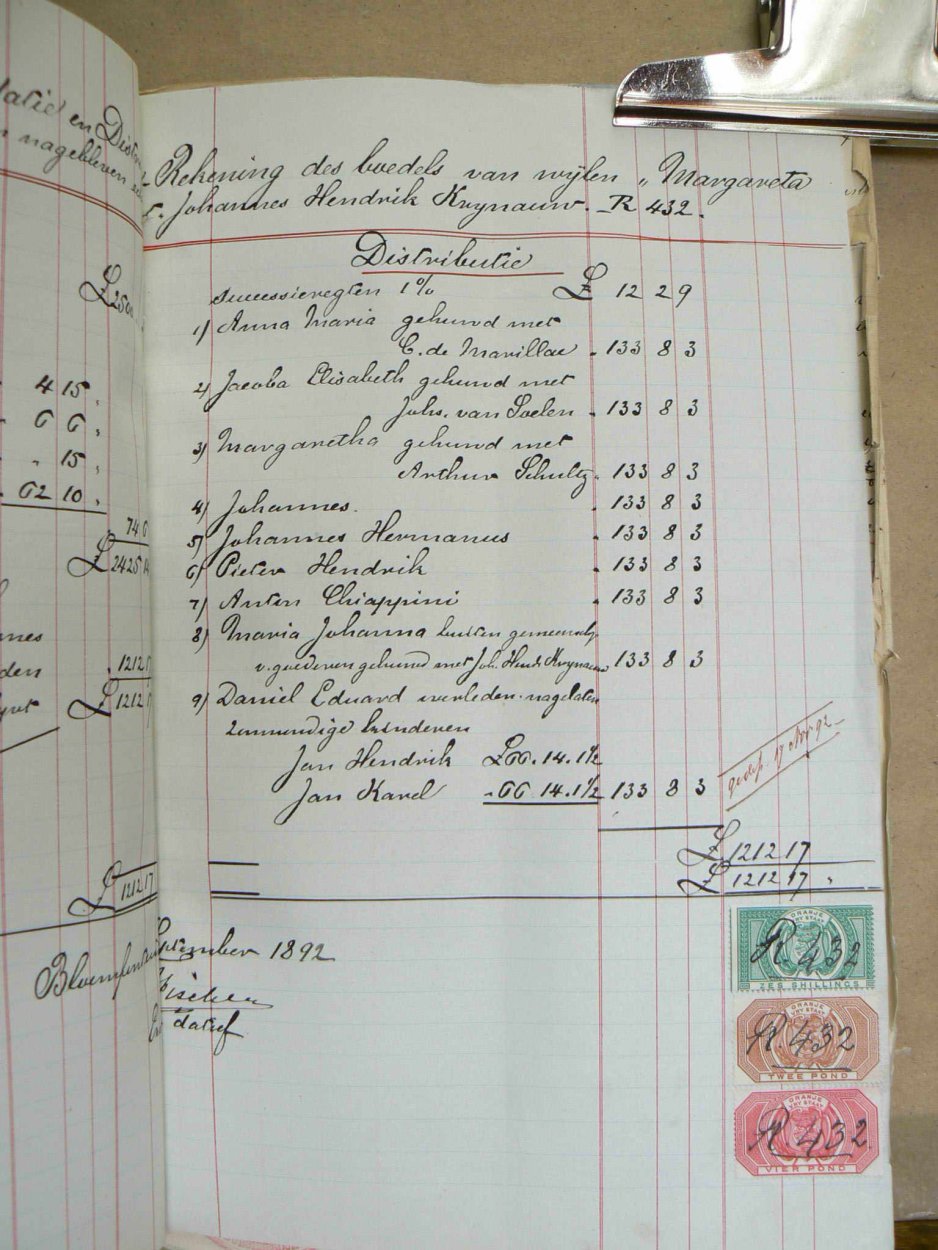 latie en Distri
nagebleven
£ 2500
4 15 "
6 6 "
" 15 "
62 10 "
74 6
£ 2425 14
nes
den 1212 17
£ 1212 17
£ 1212 17
Rekening des boedels van wijlen "Margareta
Johannes Hendrik Krynauw. R 432.
Distributie
Successieregten 1% £ 12 2 9
1) Anna Maria gehuwd met
C. de Marillac " 133 8 3
2) Jacoba Elisabeth gehuwd met
Johs. van Soelen " 133 8 3
3) Margaretha gehuwd met
Arthur Schultz " 133 8 3
4) Johannes. " 133 8 3
5) Johannes Hermanus " 133 8 3
6) Pieter Hendrik " 133 8 3
7) Anton Chiappini " 133 8 3
8) Maria Johanna buiten gemeensch.
v. goederen gehuwd met Joh. Hendr. Krynauw 133 8 3
9) Daniel Eduard overleden. nagelaten
2 onmundige kinderen
Jan Hendrik £66. 14. 1½
Jan Karel " 66. 14. 1½ 133 8 3
£ 1212 17
£ 1212 17 "
Bloemfontein September 1892
datief
ORANJE
VRY STAAT
R. 432
ZES SHILLINGS
ORANJE
VRY STAAT
R. 432
TWEE POND
ORANJE
VRY STAAT
R 432.
VIER POND